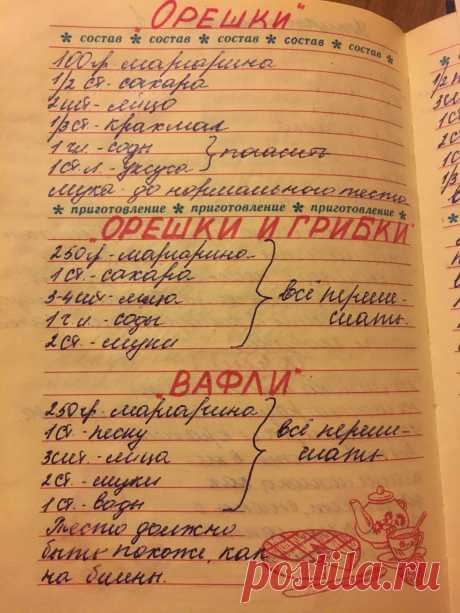 "ОРЕШКИ"
* состав * состав * состав * состав * состав *
100 гр. маргарина
1/2 ст. сахара
2 шт - яйцо
1/3 ст - крахмал
1 ч л. - соды
1 ст. л. - уксуса } погасить
мука до нормального теста
* приготовление * приготовление * приготовление *
"ОРЕШКИ И ГРИБКИ"
250 гр - маргарина
1 ст. - сахара
3-4 шт - яйца
1 ч л. - соды
2 ст. - муки
} всё переме-
шать.
"ВАФЛИ"
250 гр. - маргарина
1 ст. - песку
3 шт. - яйца
2 ст. - муки
1 ст. - воды
} всё переме-
шать.
Тесто должно
быть похоже, как
на блины.
postila.ru